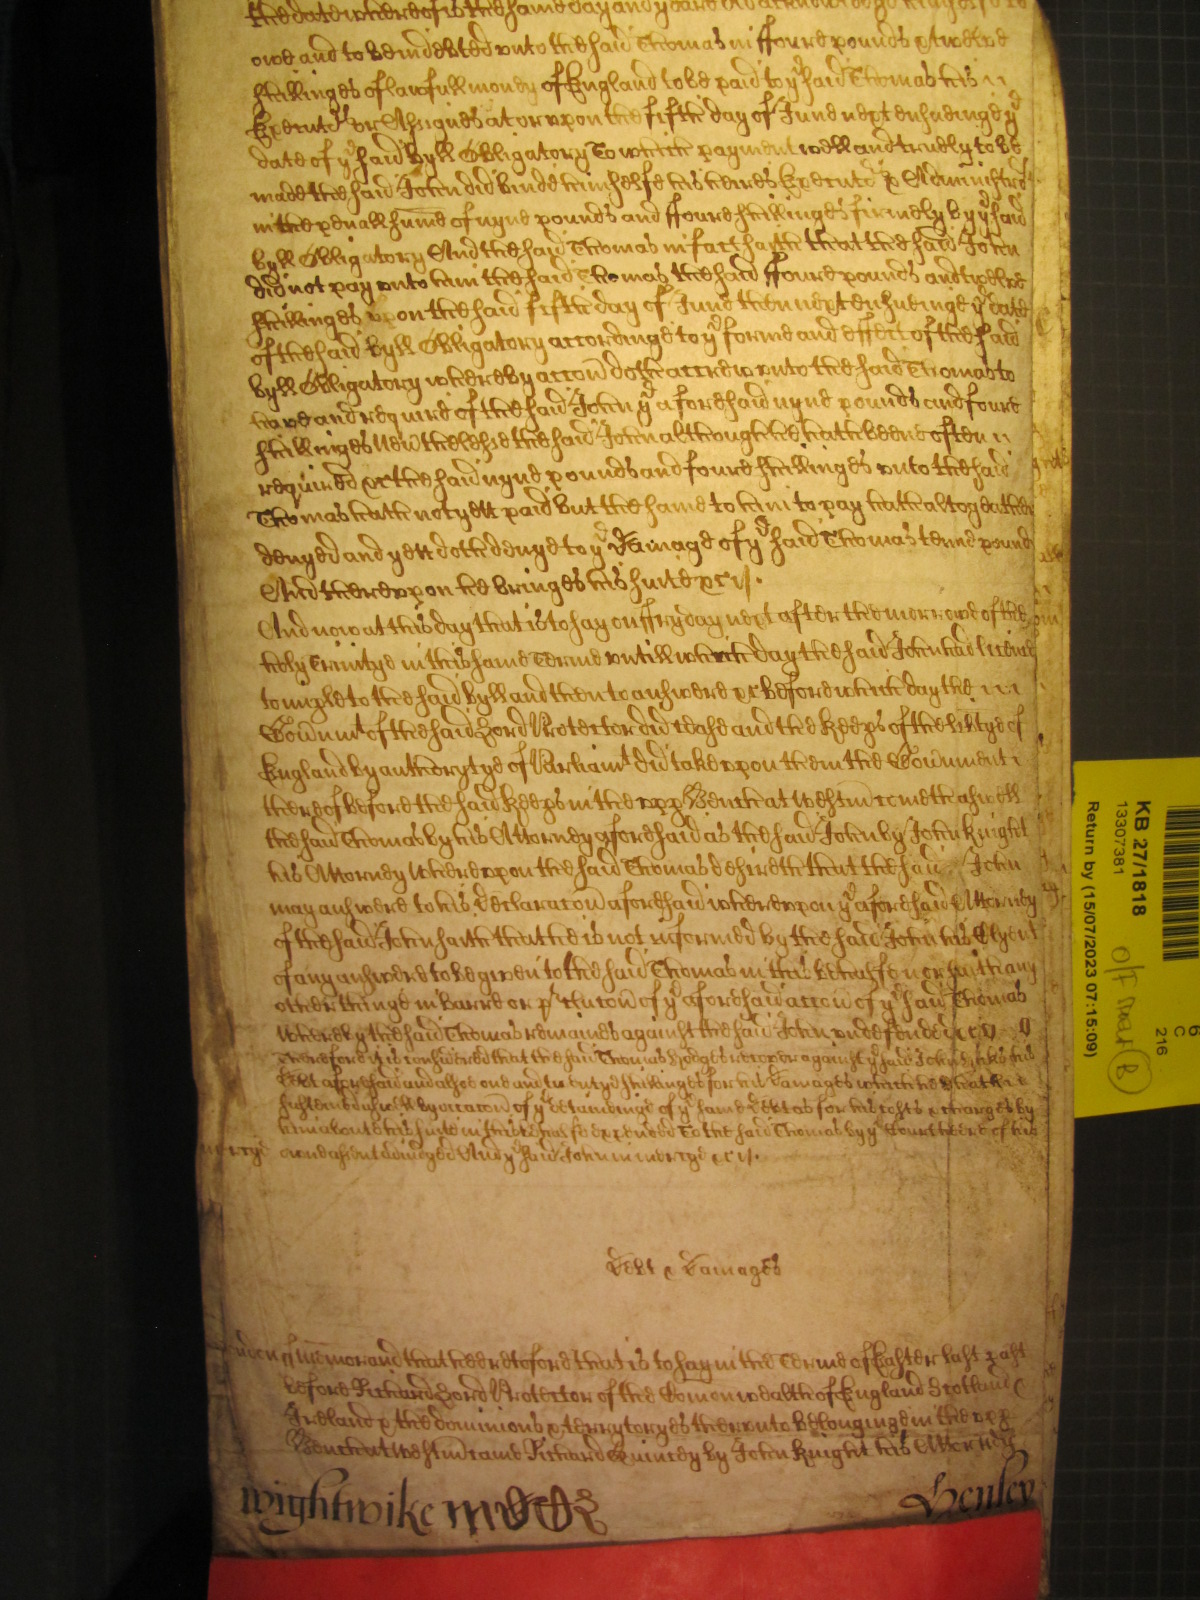 the date whereof is the same day and yeare did acknowledge himselfe to
owe and to be indebted unto the said Thomas in ffoure pounds & twelve
shillinges of lawfull money of England to be paid to yͤ said Thomas his
Executoʳˢ or Assignes at or vpon the fifth day of June next ensueinge yͤ
date of yͤ said byll Obligatory To which payment well and truely to be
made the said John did binde himselfe his heires Executoʳˢ & Administratoʳˢ
in the penall sum̄e of nyne pounds and ffoure shillinges firmely by yͤ said
byll Obligatory And the said Thomas in fact saith that the said John
did not pay vnto him the said Thomas the said ffoure pounds and twelve
shillinges vpon the said fifth day of June then next ensueinge yͤ date
of the said byll Obligatory accordinge to yͤ forme and effect of the said
byll Obligatory whereby acc̄on doth accrew vnto the said Thomas to
have and require of the said John yͤ aforesaid nyne pounds and foure
shillinges Nevthelesse the said John although he hath beene often
required &c the said nyne pounds and foure shillinges vnto the said
Thomas hath not yett paid but the same to him to pay hath altogeather
denyed and yett doth denye to yͤ Damage of yͤ said Thomas tenne pounds
And therevpon he bringes his suite &c
And now at this day that is to say on ffryday next after the morrowe of the
holy Trinitye in this same Terme vntill which day the said John had licence
to imple to the said byll and then to answere &c before which day the
Gov̄nmt of the said Lord Protector did cease and the Keeps of the lib̄tye of
England by authorytye of Parliamt did take vpon them the Gov̄nment
thereof before the said Keeps in the vpp Bench at Westm̄ cometh aswell
the said Thomas by his Attorney aforesaid as the said John by John Knight
his Attorney Wherevpon the said Thomas desireth that the said John
may answere to his Declarac̄on aforesaid wherevpon yͤ aforesaid Attorney
of the said John saith that he is not informed by the said John his Clyent
of any answere to be given to the said Thomas in this behalfe nor saith any
other thinge in barre or p̱clusion of yͤ aforesaid acc̄on of yͤ said Thomas
Whereby the said Thomas remaines against the said John vndefended &c
Therefore it is considered that the said Thomas Hodges recover against yͤ said John his
Debt aforesaid and alsoe one and twentye shillinges for his Damages which he hath
susteined aswell by occac̄on of yͤ deteininge of yͤ same Debt as for his costs & charges by
him about his suite in this behalfe expended To the said Thomas by yͤ Court here of his
mercye owne assent adiudged And yͤ said John in mercye &c
Debt & Damages
Memorand that heretofore that is to say in the Terme of Easter last past
before Richard Lord Protector of the Com̄onwealth of England Scotland &
Ireland & the dominions & terrytoryes therevnto belonginge in the vpp
Bench at Westm̄ came Richard Quiney by John Knight his Attorney
Wightwike
Henley
KB 27/1818
13307381
Return by (15/07/2023 07:15:09)
6
C
216
off near
B